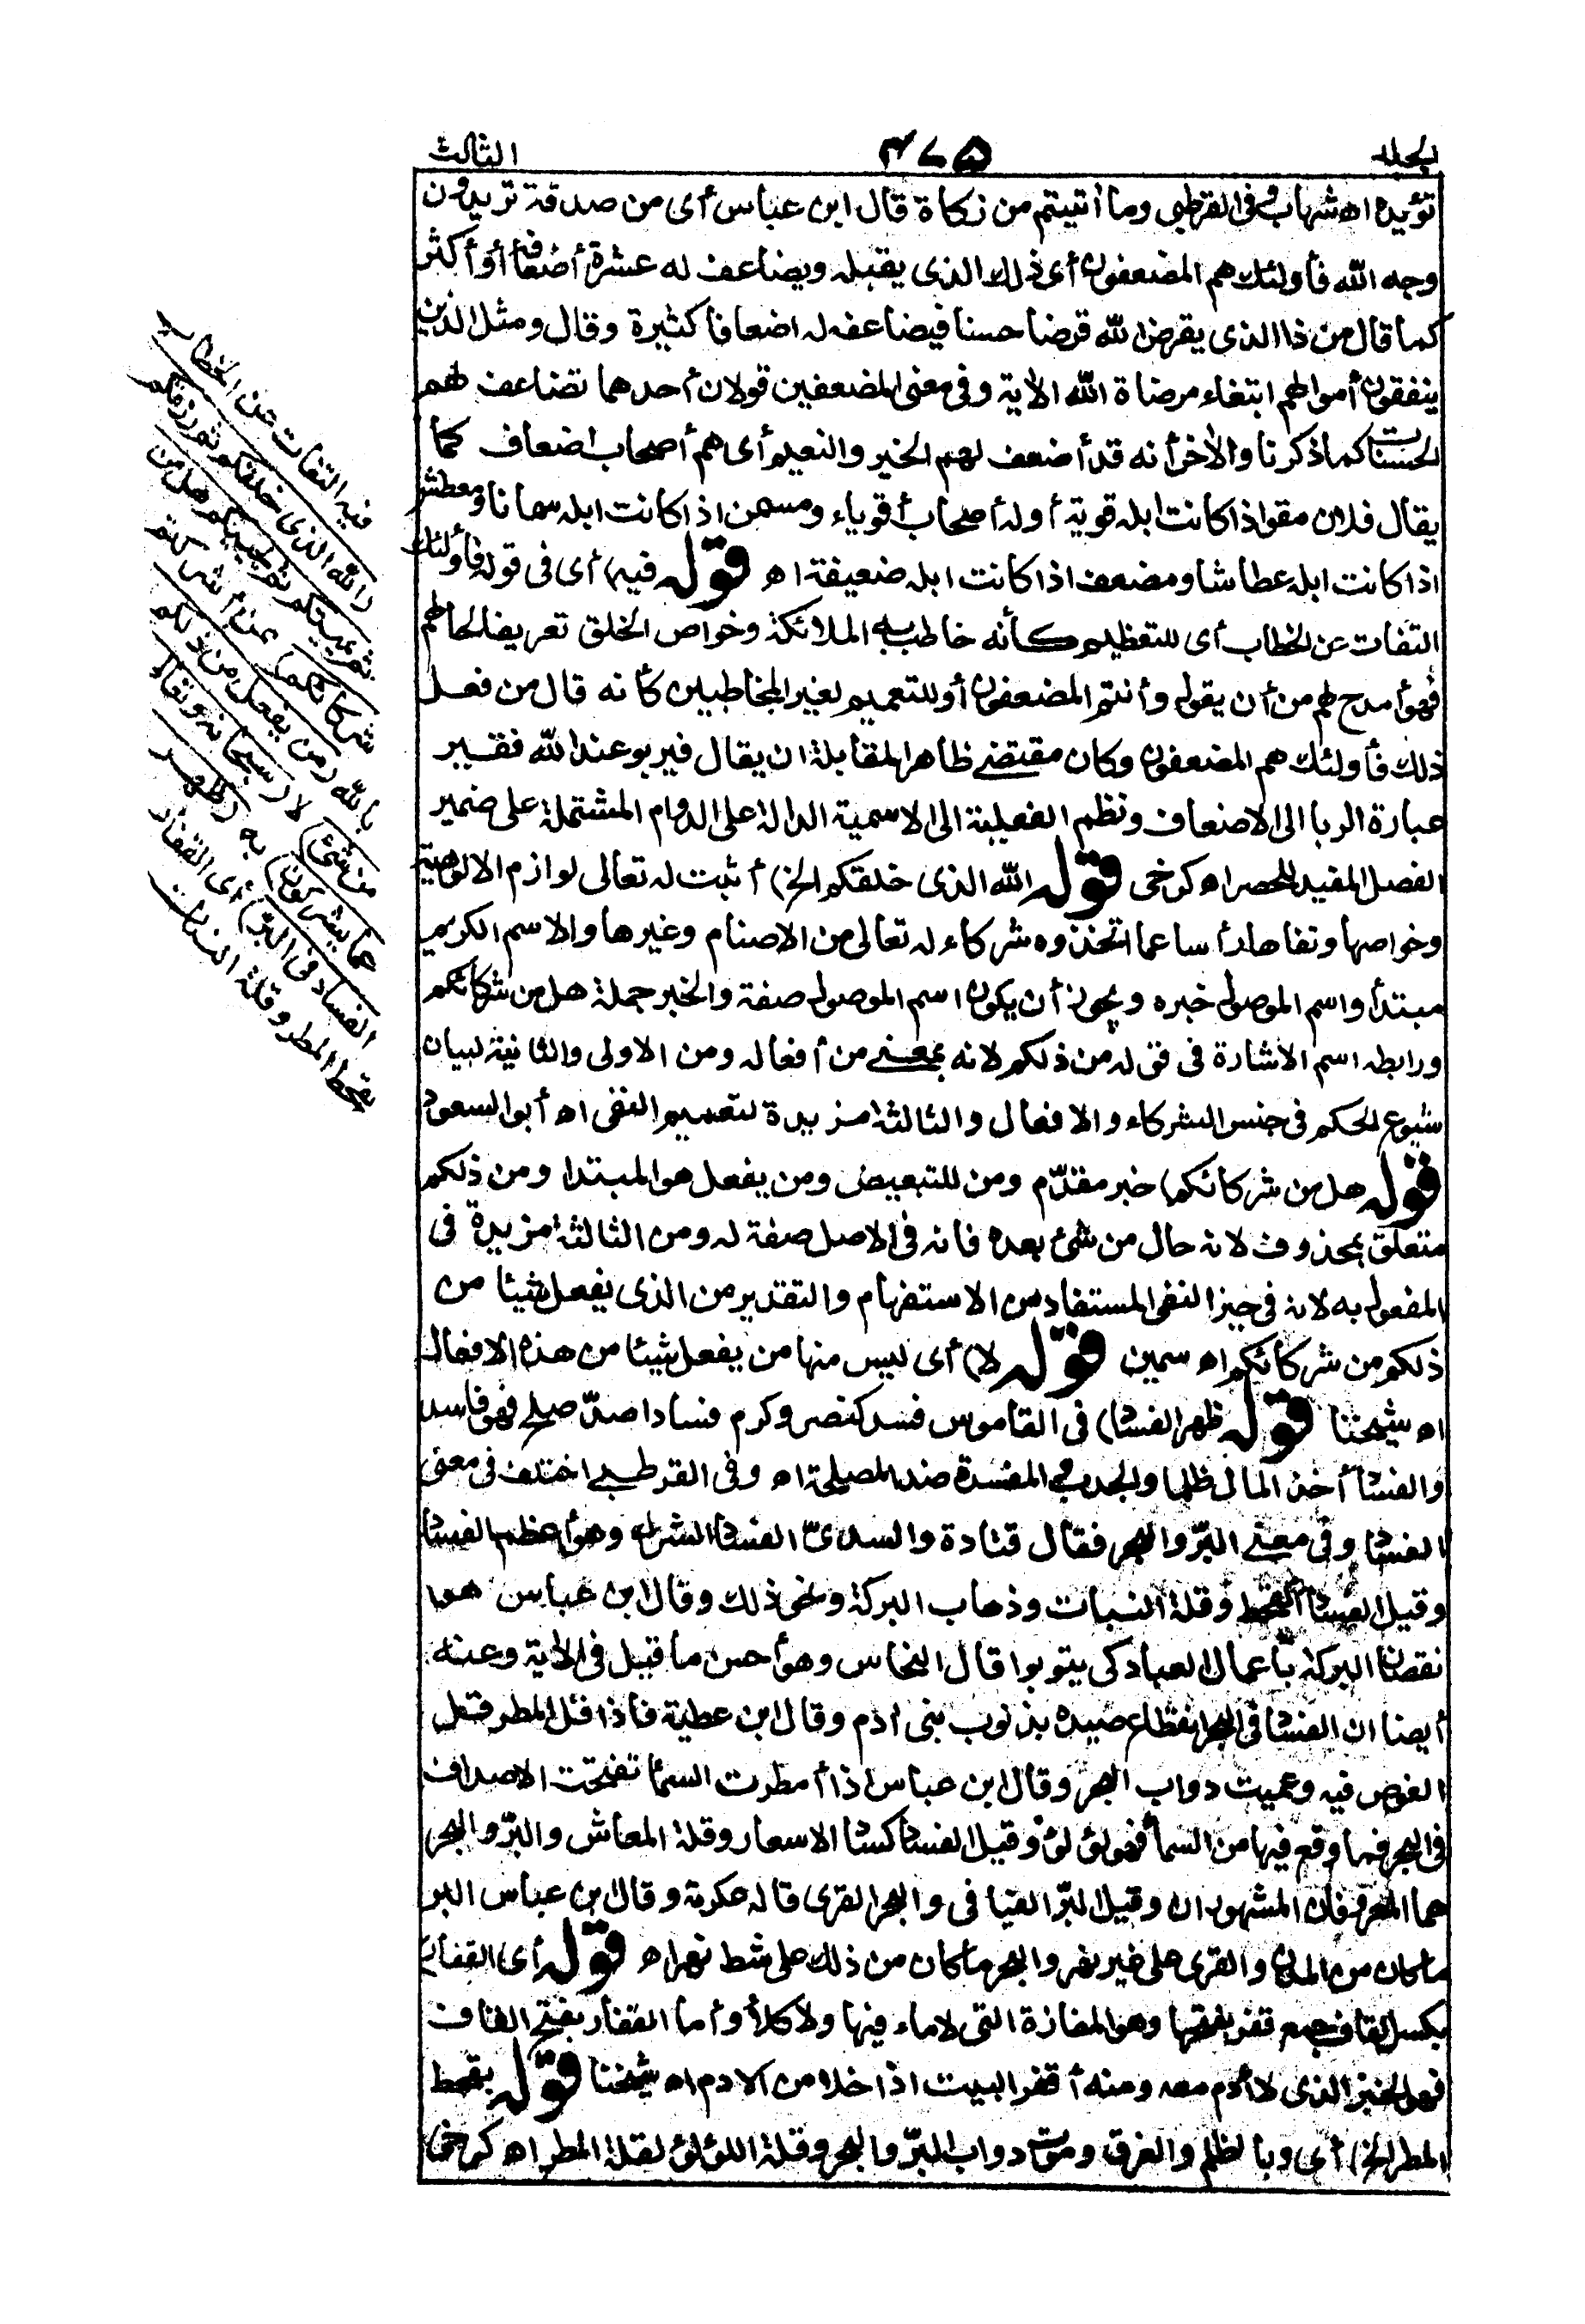 الجلد
٤٧٥
الثالث
تؤيده اه شهاب وفى القرطبى وما أتيتم من زكاة قال ابن عباس أى من صدقة تريدون
وجه الله فأولئك هم المضعفون أى ذلك الذى يقبله ويضاعف له عشرة أضعافه أو أكثر
كما قال من ذا الذى يقرض الله قرضا حسنا فيضاعفه له اضعافا كثيرة وقال ومثل الذين
ينفقون أموالهم ابتغاء مرضاة الله الآية وفى معنى المضعفين قولان أحدهما تضاعف لهم
الحسنات كما ذكرنا والآخر أنه قد أضعف لهم الخير والنعيم أى هم أصحاب اضعاف كما
يقال فلان مقو اذا كانت ابله قوية أو له أصحاب أقوياء ومسمن اذا كانت ابله سمانا ومعطش
اذا كانت ابله عطاشا ومضعف اذا كانت ابله ضعيفة اه قوله فيه) أى فى قوله فأولئك
التفات عن الخطاب أى للتعظيم كأنه خاطب به الملائكة وخواص الخلق تعريفا لحالهم
فهو أمدح لهم من أن يقول وأنتم المضعفون أو للتعميم لغير المخاطبين كأنه قال من فعل
ذلك فأولئك هم المضعفون وكان مقتضى ظاهر المقابلة ان يقال فيربو عند الله فغير
عبارة الربا الى الاضعاف ونظم الفعلية الى الاسمية الدالة على الدوام المشتملة على ضمير
الفصل المفيد للحصر اه كرخى قوله الله الذى خلقكم الخ) أثبت له تعالى لوازم الالوهية
وخواصها ونفاها رأسا عما اتخذوه شركاء له تعالى من الاصنام وغيرها والاسم الكريم
مبتدأ واسم الموصول خبره ويجوز أن يكون اسم الموصول صفة والخبر جملة هل من شركائكم
ورابطه اسم الاشارة فى قوله من ذلكم لانه بمعنى من أفعاله ومن الاولى والثانية لبيان
شيوع الحكم فى جنس الشركاء والافعال والثالثة مزيدة لتعميم النفى اه أبو السعود
قوله هل من شركائكم) خبر مقدّم ومن للتبعيض ومن يفعل هو المبتدا ومن ذلكم
متعلق بمحذوف لانه حال من شئ بعده فانه فى الاصل صفة له ومن الثالثة مزيدة فى
المفعول به لانه فى حيز النفى المستفاد من الاستفهام والتقدير من الذى يفعل شيئا من
ذلكم من شركائكم اه سمين قوله لا) أى ليس منها من يفعل شيئا من هذه الافعال
اه شيخنا قوله ظهر الفساد) فى القاموس فسد كنصر وكرم فسادا ضدّ صلح فهو فاسد
والفساد أخذ المال ظلما والجدب والمفسدة ضد المصلحة اه وفى القرطبى اختلف فى معنى
الفساد وفى معنى البرّ والبحر فقال قتادة والسدىّ الفساد الشرك وهو أعظم الفساد
وقيل الفساد القحط وقلة النبات وذهاب البركة ونحو ذلك وقال ابن عباس هو
نقصان البركة بأعمال العباد كى يتوبوا قال النحاس وهو أحسن ما قيل فى الآية وعنه
أيضا ان الفساد فى البحر انقطاع صيده بذنوب بنى ادم وقال ابن عطية فاذا قل المطر قل
الغوص فيه وعميت دواب البحر وقال ابن عباس اذا أمطرت السماء تفتحت الاصداف
فى البحر فما وقع فيها من السماء فهو لؤلؤ وقيل الفساد كساد الاسعار وقلة المعاش والبرّ والبحر
هما المعروفان المشهوران وقيل البرّ الفيافى والبحر القرى قاله عكرمة وقال ابن عباس البر
ما كان من المدن والقرى على غير نهر والبحر ما كان من ذلك على شط نهر اه قوله أى القفار)
بكسر القاف جمع قفر بفتحها وهو المفازة التى لا ماء فيها ولا كلأ وأما القفار بفتح القاف
فهو الخبز الذى لا أدم معه ومنه أقفر البيت اذا خلا من الادم اه شيخنا قوله بقحط
المطر الخ) أى وبالظلم والغرق وموت دواب البرّ والبحر وقلة اللؤلؤ لقلة المطر اه كرخى
فيه التفات عن الخطاب
(الله الذى خلقكم ثم رزقكم
ثم يميتكم ثم يحييكم هل من
شركائكم) ممن أشركتم
بالله (من يفعل من ذلكم
من شئ) لا (سبحانه وتعالى
عما يشركون) به (ظهر
الفساد فى البرّ) أى القفار
بقحط المطر وقلة النبات